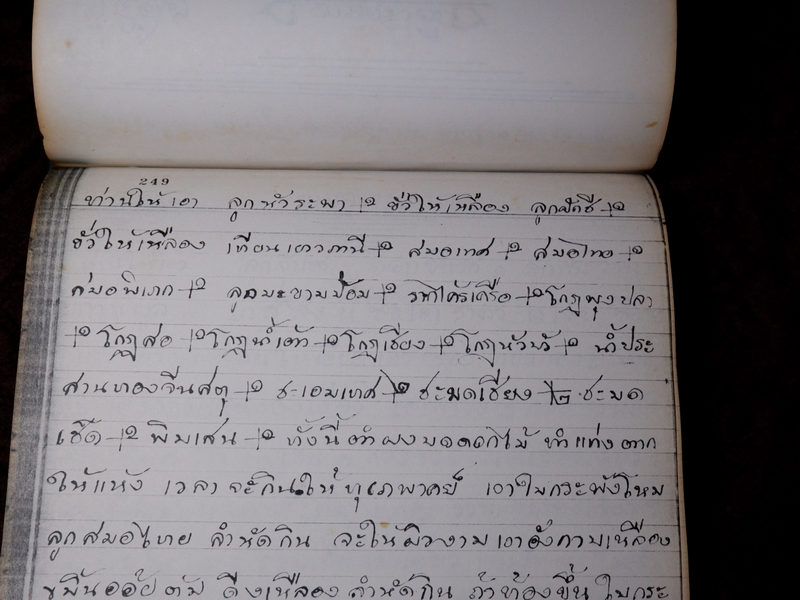 249
ท่านให้เอา ลูกหัวระพา ๑ ขั้วให้เหลือง ลูกผักชี ๑
ขั้วให้เหลือง เทียนเยาวภานี ๑ สมอเทศ ๑ สมอไทย ๑
สมอพิเภก ๑ ลูกมะขามป้อม ๑ โกฎพุงปลา
๑ โกฎสอ ๑ โกฎน้ำเต้า ๑ โกฎเชียง ๑ โกฎหัวบัว ๑ น้ำประ
สานทองจีนสตุ ๑ ชะเอมเทศ ๑ ชะมดเชียง ๑/๒ ชะมด
เช็ด ๑ พิมเสน ๑ ทั้งนี้ทำผงบดดอกไม้ ทำแท่งตาก
ให้แห้ง เวลาจะกินให้ เอาใบกระพังโหม
ลูกสมอไทย สำหัดกิน จะให้ผิวงาม เอาอังกาบเหลือง
ขมิ้นอ้อยต้ม ดีงูเหลือง สำหัดกิน ถ้าท้องขึ้น ใบกระ